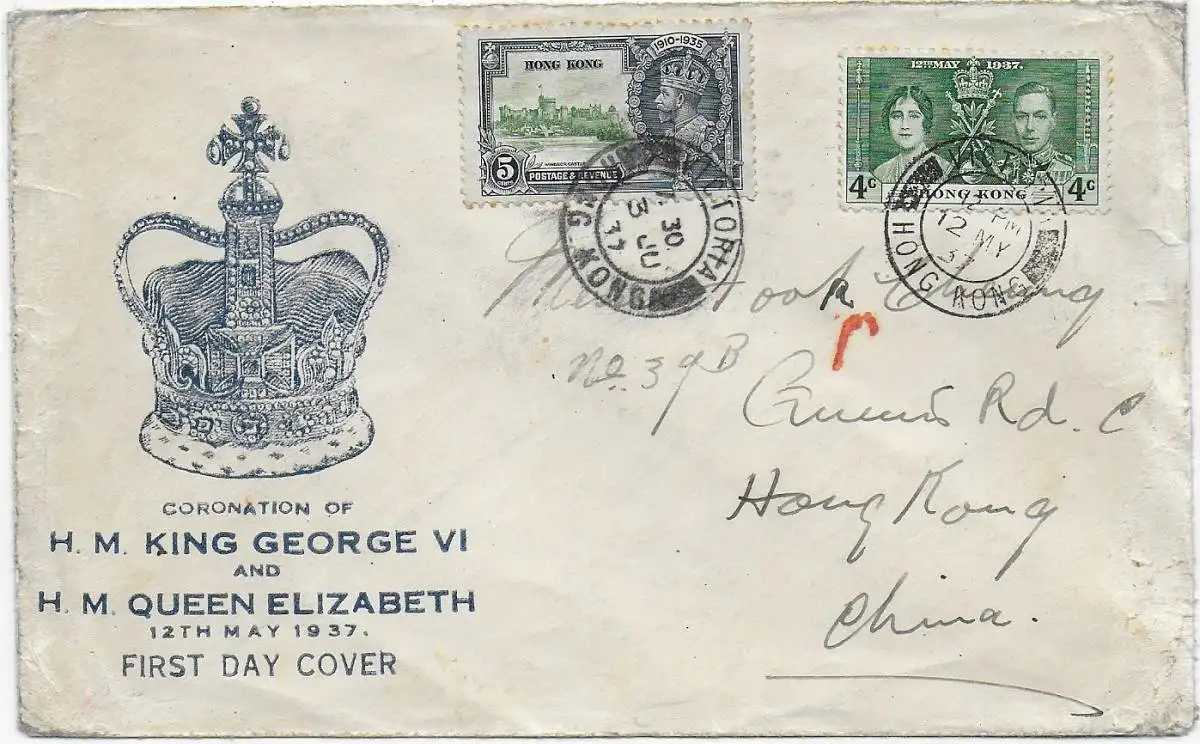 1910-1935
HONG KONG
WINDSOR CASTLE
5
CENTS
POSTAGE & REVENUE
12TH MAY 1937.
4c HONG KONG 4c
VICTORIA
30
3 JU
37
HONG KONG
PM
12 MY
37
HONG KONG
Fook
r
No. 39B
Queen's Rd. C
Hong Kong
China.
CORONATION OF
H. M. KING GEORGE VI
AND
H. M. QUEEN ELIZABETH
12TH MAY 1937.
FIRST DAY COVER